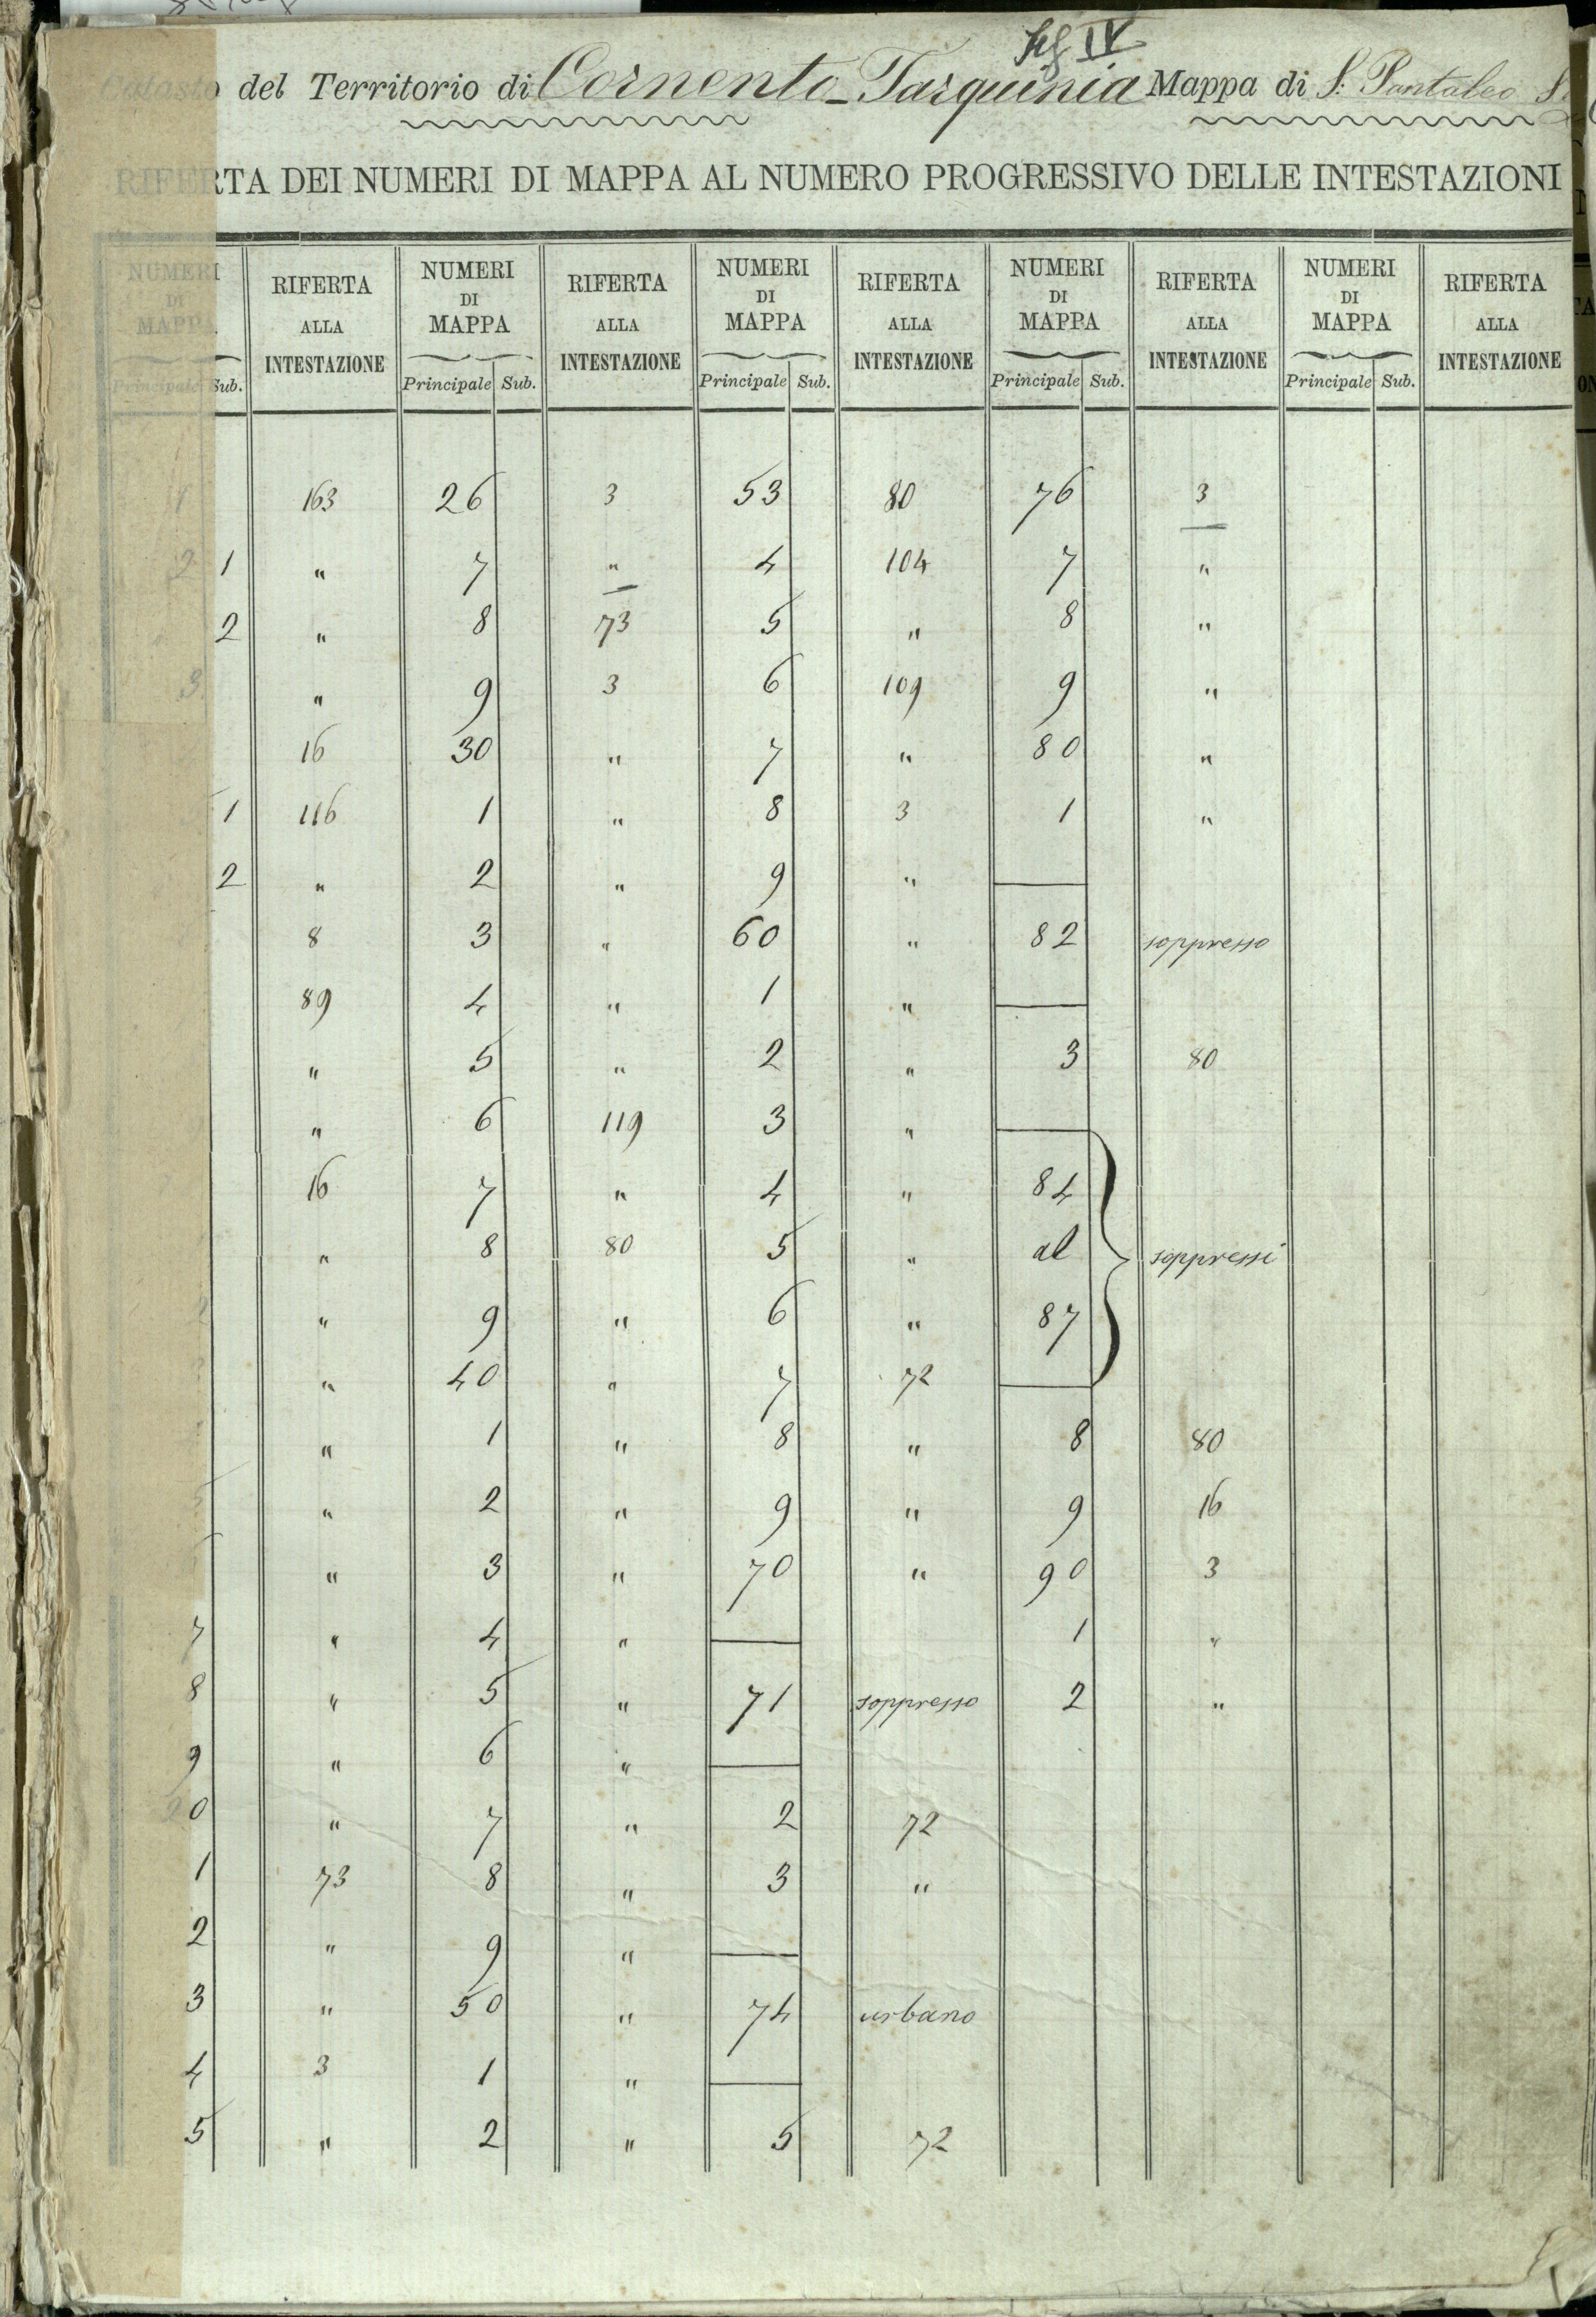 Catasto del Territorio di Cornento-Tarquinia Mappa di S. Pantaleo
IV
RIFERTA DEI NUMERI DI MAPPA AL NUMERO PROGRESSIVO DELLE INTESTAZIONI
NUMERI RIFERTA NUMERI RIFERTA NUMERI RIFERTA NUMERI RIFERTA NUMERI RIFERTA
DI ALLA DI ALLA DI ALLA DI ALLA DI ALLA
MAPPA INTESTAZIONE MAPPA INTESTAZIONE MAPPA INTESTAZIONE MAPPA INTESTAZIONE MAPPA INTESTAZIONE
Principale Sub. Principale Sub. Principale Sub. Principale Sub. Principale Sub.
1 163 26 3 53 80 76 3
2 1 " 7 " 4 104 7 "
" 2 " 8 73 5 " 8 "
3 " 9 3 6 109 9 "
16 30 " 7 " 80 "
1 116 1 " 8 3 1 "
2 " 2 " 9 "
8 3 " 60 " 82 soppresso
89 4 " 1 "
" 5 " 2 " 3 80
" 6 119 3 "
16 7 " 4 " 84
" 8 80 5 " al soppressi
" 9 " 6 " 87
" 40 " 7 72
" 1 " 8 " 8 80
" 2 " 9 " 9 16
" 3 " 70 " 90 3
7 " 4 " 1 "
8 " 5 " 71 soppresso 2 "
9 " 6 "
20 " 7 " 2 72
1 73 8 " 3 "
2 " 9 "
3 " 50 " 74 urbano
4 3 1 "
5 " 2 " 5 72